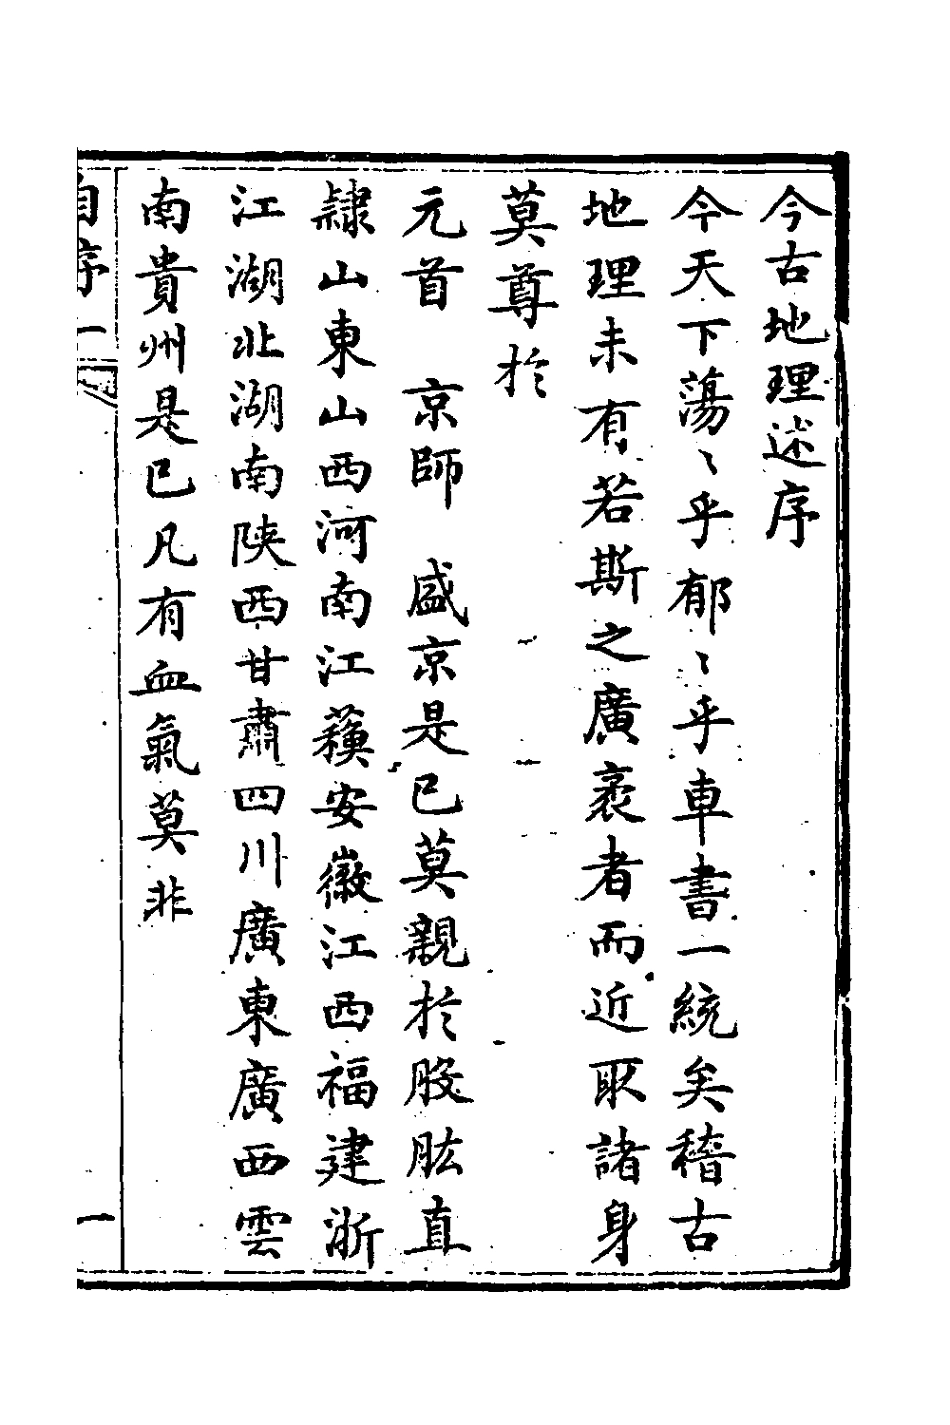 今古地理述序
今天下蕩〻乎郁〻乎車書一統矣稽古
地理未有若斯之廣袤者而近取諸身
莫尊於
元首　京師　盛京是已莫親於股肱直
隸山東山西河南江蘓安徽江西福建浙
江湖北湖南陝西甘肅四川廣東廣西雲
南貴州是已凡有血氣莫非
自序一
一